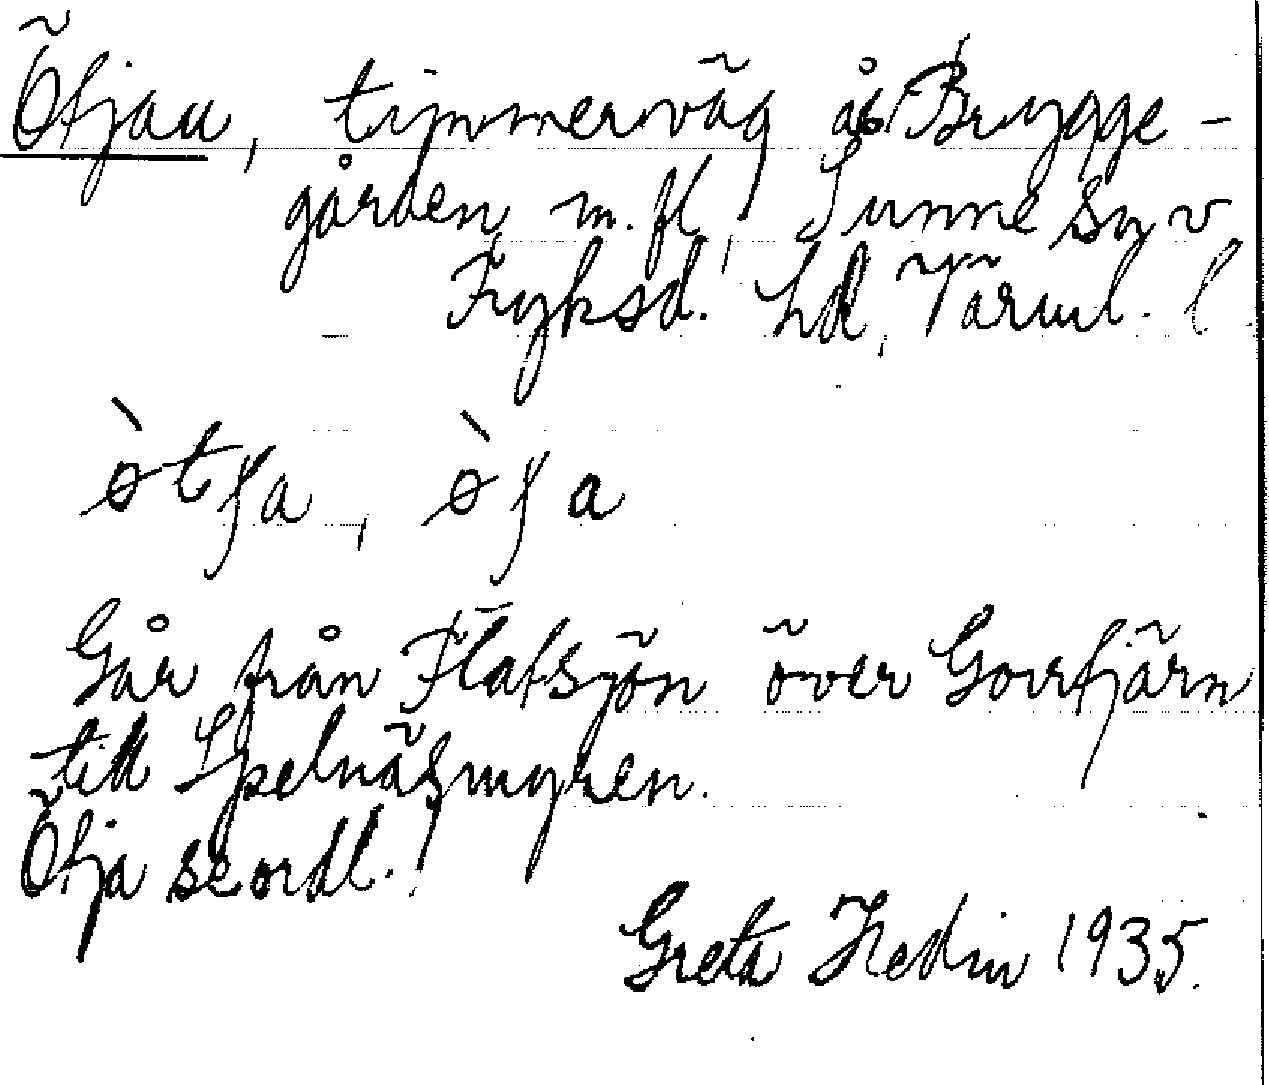 Ötjan, timmerväg å Brygge-
gården m. fl., Sunne sn v
Fryksd. hd, Värml. l.
ò̀tʃa, ò̀ʃa
Går från Flatsjön över Gorrtjärn
till Spelnäsmyren.
Ötja se ordl.!
Greta Hedin 1935.